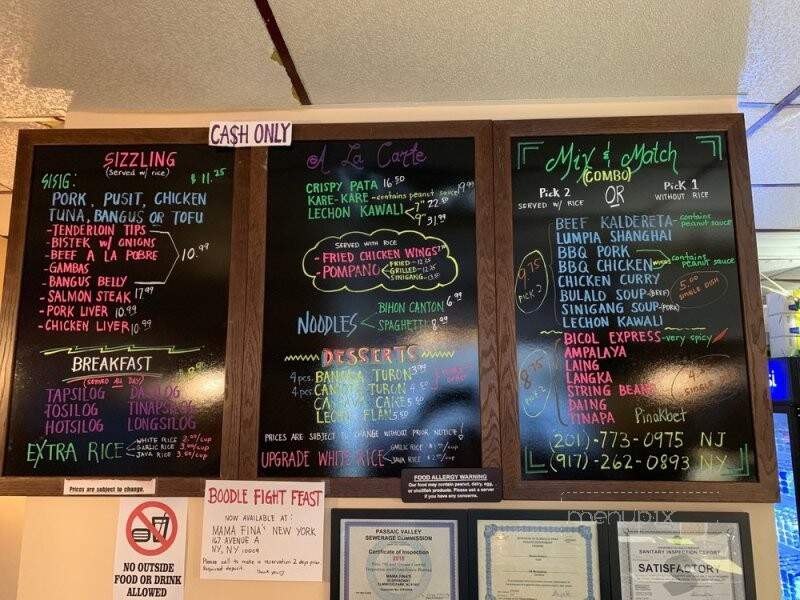 CASH ONLY
SIZZLING
(SERVED w/ RICE)
SISIG: $11.25
PORK, PUSIT, CHICKEN
TUNA, BANGUS OR TOFU
- TENDERLOIN TIPS
- BISTEK W/ ONIONS
- BEEF A LA POBRE
- GAMBAS
- BANGUS BELLY
10.99
- SALMON STEAK 17.99
- PORK LIVER 10.99
- CHICKEN LIVER 10.99
BREAKFAST
(SERVED ALL DAY)
TAPSILOG
TOSILOG TINAPSILOG
HOTSILOG LONGSILOG
EXTRA RICE
WHITE RICE 2.00/CUP
GARLIC RICE 3.00/CUP
JAVA RICE 3.00/CUP
A La Carte
CRISPY PATA 16.50
KARE-KARE - contains peanut sauce! 19.99
LECHON KAWALI
7" 22.50
9" 31.99
SERVED WITH RICE
- FRIED CHICKEN WINGS
- POMPANO
FRIED - 12.25
GRILLED - 12.25
SINIGANG - 13.50
NOODLES
BIHON CANTON 6.99
SPAGHETTI 8.99
DESSERTS
4 pcs. BANANA TURON 3.99
4 pcs. TURON 4.50
CAKE 5.50
LECHE FLAN 5.50
PRICES ARE SUBJECT TO CHANGE WITHOUT PRIOR NOTICE!
UPGRADE WHITE RICE
GARLIC RICE
JAVA RICE
Mix & Match
(COMBO)
Pick 2 OR Pick 1
SERVED W/ RICE WITHOUT RICE
9.75 PICK 2
BEEF KALDERETA - contains peanut sauce
LUMPIA SHANGHAI
BBQ PORK
BBQ CHICKEN contains peanut sauce
CHICKEN CURRY
BULALO SOUP - (BEEF)
SINIGANG SOUP - (PORK)
LECHON KAWALI
5.00 SINGLE DISH
8.75 PICK 2
BICOL EXPRESS - very spicy
AMPALAYA
LAING
LANGKA
STRING BEANS
DAING
TINAPA Pinakbet
(201)-773-0975 NJ
(917)-262-0893 NY
Prices are subject to change.
FOOD ALLERGY WARNING
Our food may contain peanut, dairy, egg,
or shellfish products. Please ask a server
if you have any concerns.
BOODLE FIGHT FEAST
NOW AVAILABLE AT:
MAMA FINA'S NEW YORK
167 AVENUE A
NY, NY 10009
Please call to make a reservation 2 days prior.
Required deposit. Thank you
NO OUTSIDE
FOOD OR DRINK
ALLOWED
PASSAIC VALLEY
SEWERAGE COMMISSION
Certificate of Inspection
2018
MAMA FINA'S
SANITARY INSPECTION REPORT
SATISFACTORY
menupix